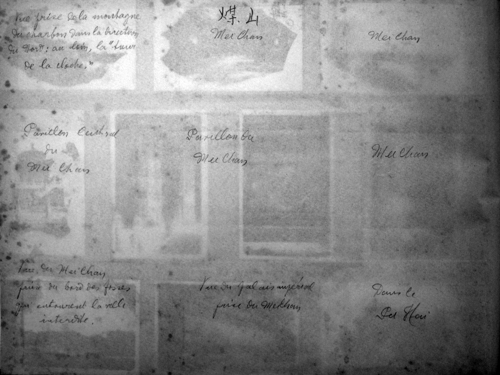 Vue prise de la montagne
du charbon dans la direction
du Nord : au loin, la "tour
de la cloche"
煤山
Mei Chan
Mei Chan
Pavillon Central
du
Mei Chan
Pavillon du
Mei Chan
Mei Chan
Vue du Mei Chan
prise du bord des fossés
qui entourent la ville
interdite.
Vue du Palais impérial
prise du Mei Chan
Dans le
Pei Hai